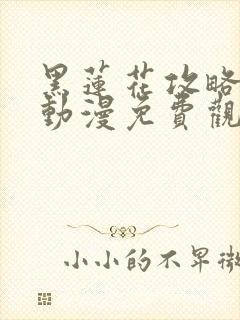 黑蓮花攻略
動漫免費觀
小小的不早微